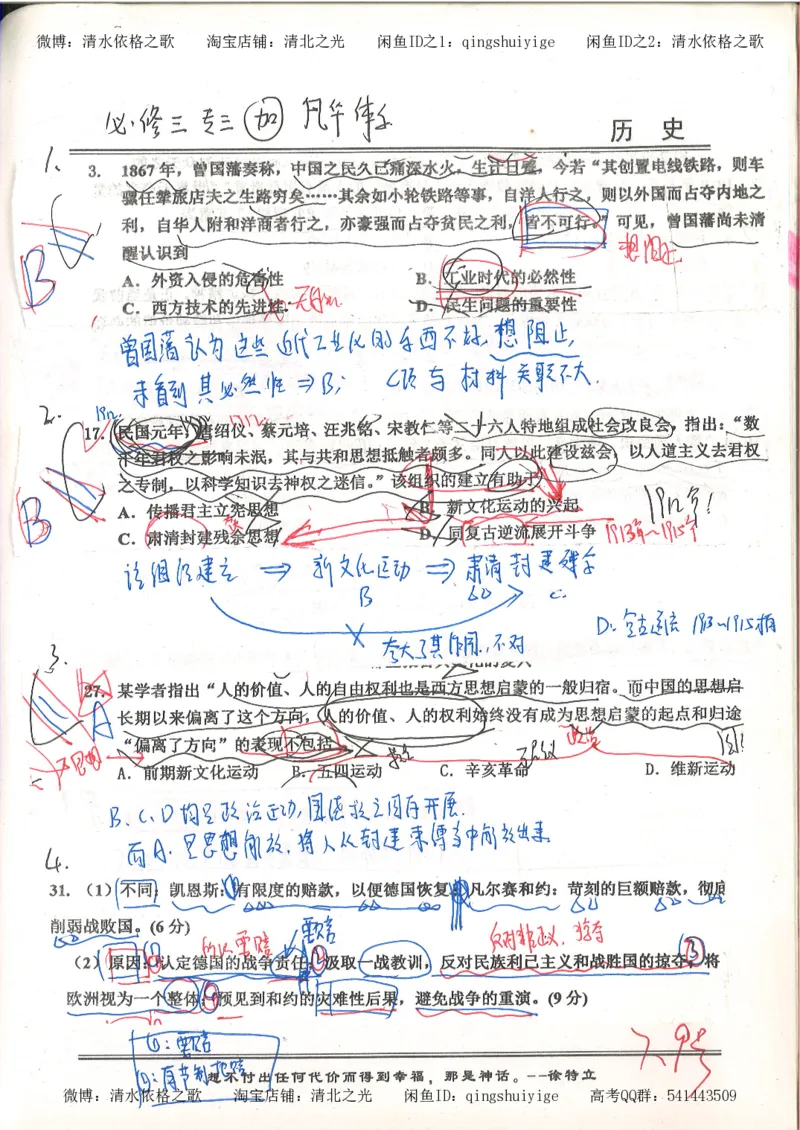 微博：清水依格之歌　淘宝店铺：清北之光　闲鱼ID之1：qingshuiyige　闲鱼ID之2：清水依格之歌
必修三 专三 加 凡华体系
历 史
1.
3. 1867年，曾国藩奏称，中国之民久已痛深水火，生计日蹙，今若“其创置电线铁路，则车
骡任辇旅店夫之生路穷矣……其余如小轮铁路等事，自洋人行之，则以外国而占夺内地之
利，自华人附和洋商者行之，亦豪强而占夺贫民之利，皆不可行。”可见，曾国藩尚未清
醒认识到
想阻止
B
A．外资入侵的危害性　B．工业时代的必然性
C．西方技术的先进性　D．民生问题的重要性
无関
曾国藩认为这些近代工业化的东西不好，想阻止，
未看到其必然性⇒B； C项与材料关联不大．
2. 1912 1912
17．民国元年，唐绍仪、蔡元培、汪兆铭、宋教仁等二十六人特地组成社会改良会，指出：“数
千年君权之影响未泯，其与共和思想抵触者颇多。同人以此建设兹会，以人道主义去君权
之专制，以科学知识去神权之迷信。”该组织的建立有助于
B
A．传播君主立宪思想　B．新文化运动的兴起
1912年！
C．肃清封建残余思想　D．同复古逆流展开斗争
1913年~1915年
该组织建立 ⇒ 新文化运动 ⇒ 肃清封建残余
B C.
夸大了其作用，不对
D：复古逆流 1913~1915期
3.
27．某学者指出“人的价值、人的自由权利也是西方思想启蒙的一般归宿。而中国的思想启
长期以来偏离了这个方向，人的价值、人的权利始终没有成为思想启蒙的起点和归途
A
“偏离了方向”的表现不包括
A．前期新文化运动　B．五四运动　C．辛亥革命　D．维新运动
B、C、D均是政治运动，围绕救亡图存开展．
而A．是思想解放，将人从封建束缚当中解放出来
4.
31．（1）不同：凯恩斯：有限度的赔款，以便德国恢复；凡尔赛和约：苛刻的巨额赔款，彻底
削弱战败国。(6分)
要赔
反对非正义、掠夺
（2）原因：认定德国的战争责任；汲取一战教训，反对民族利己主义和战胜国的掠夺；将
欧洲视为一个整体；预见到和约的灾难性后果，避免战争的重演。(9分)
①：要赔
想不付出任何代价而得到幸福，那是神话。--徐特立
微博：清水依格之歌　淘宝店铺：清北之光　闲鱼ID：qingshuiyige　高考QQ群：541443509